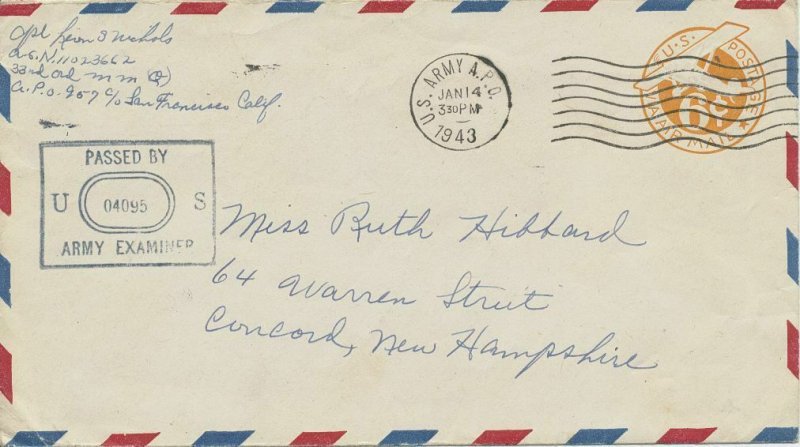 Cpl Leron S Nichols
A.S.N. 11023662
33rd Ord M M (Q)
A.P.O. 957 c/o San Francisco Calif.
U.S. ARMY A.P.O.
JAN 14
3 30 PM
1943
U.S. POSTAGE
6¢
VIA AIR MAIL
PASSED BY
U 04095 S
ARMY EXAMINER
Miss Ruth Hibbard
64 Warren Street
Concord, New Hampshire